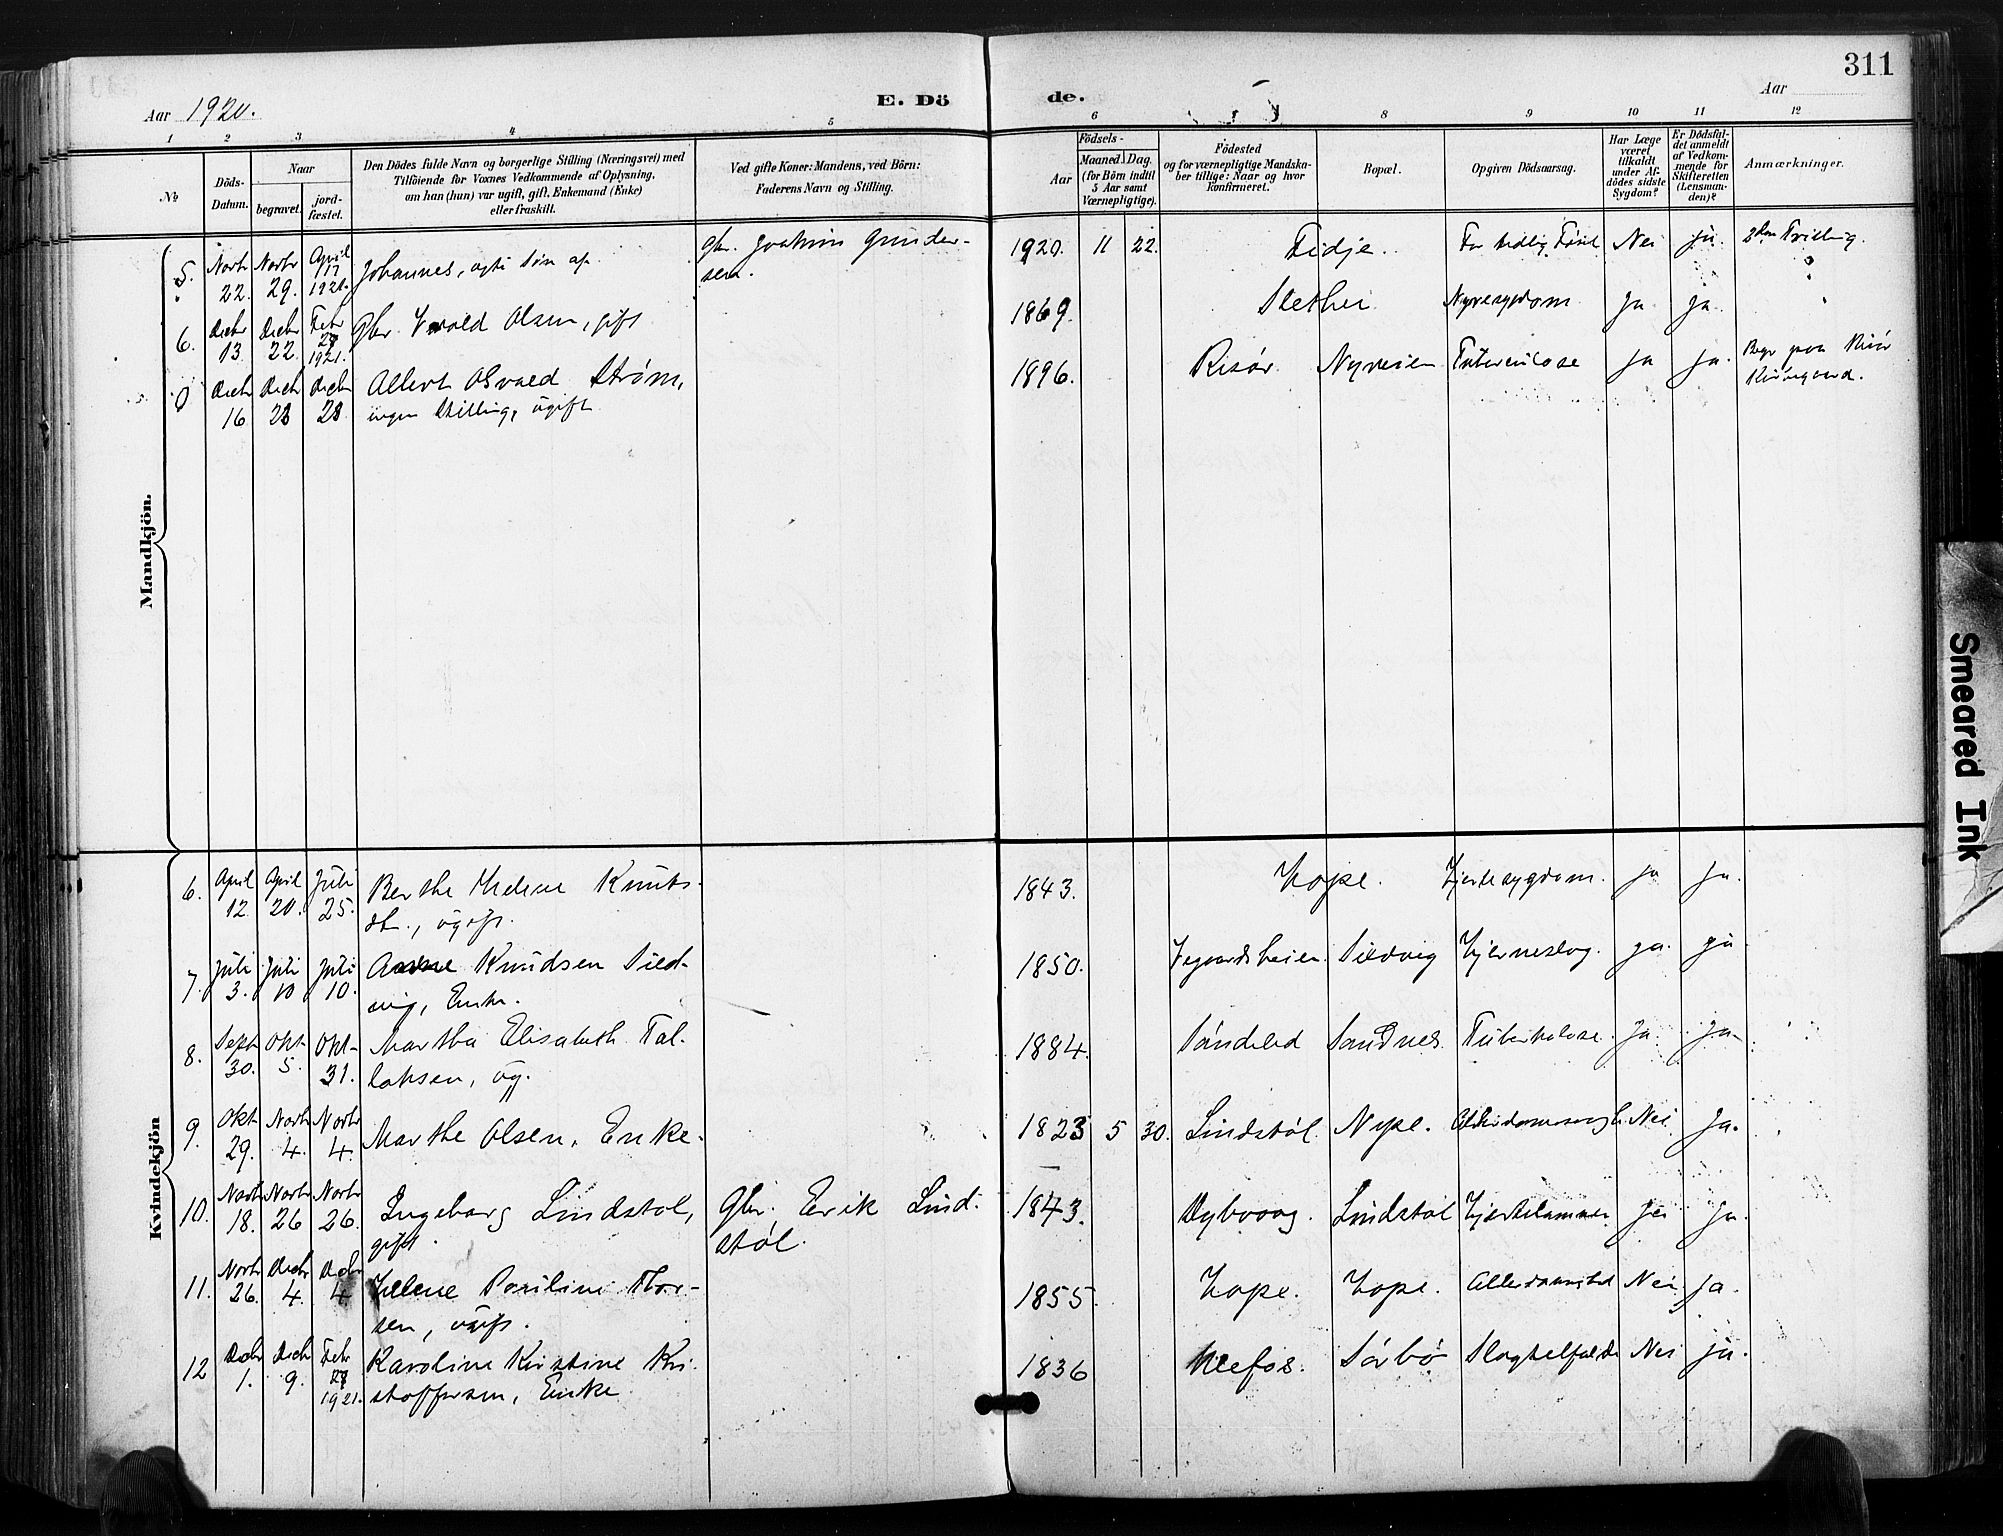 311
Aar 1920.
E. Döde.
Aar
1 2 3 4 5 6 7 8 9 10 11 12
№
Döds-Datum.
Naar
begravet.
jord-fæstet.
Den Dödes fulde Navn og borgerlige Stilling (Næringsvei) med
Tilföiende for Voxnes Vedkommende af Oplysning,
om han (hun) var ugift, gift, Enkemand (Enke)
eller fraskilt.
Ved gifte Koner: Mandens, ved Börn:
Faderens Navn og Stilling.
Födsels-
Aar
Maaned. Dag.
(for Börn indtil
5 Aar samt
Værnepligtige).
Födested
og for værnepligtige Mandska-
ber tillige: Naar og hvor
konfirmeret.
Bopæl.
Opgiven Dödsaarsag.
Har Læge
været
tilkaldt
under Af-
dödes sidste
Sygdom?
Er Dödsfal-
det anmeldt
af Vedkom-
mende for
Skifteretten
(Lensman-
den)?
Anmærkninger.
Mandkjön.
5. Novbr 22. Novbr 29. April 17 1921. Johannes, ægte søn af Gbr. Joakim Gunder-
sen. 1920. 11 22. Fidje. For tidlig Født Nei ja. 2den Tvilling.
6. Decbr 13. Decbr 22. Febr 1921. Gbr. Olsen, gift 1869. Slethei Nyresygdom Ja ja.
0 Decbr 16 Decbr 28 Decbr 28. Albert Osvald Strøm,
ingen Stilling, ugift 1896. Risør Nyveien Tuberculose ja ja. Begr. paa Risør
Kirkegaard.
Kvindekjön
6. April 12. April 20. Juli 25. Berthe Helene Knuts-
dtr., ugift. 1843. Hope. Hjertesygdom. ja ja.
7. Juli 3. Juli 10 Juli 10. Anne Knudsen Sild-
vig, Enke. 1850. Vegaardsheien. Sildvig Hjerneslag. ja. ja
8. Sept 30. Okt. 5. Okt- 31. Martha Elisabeth Tal-
laksen, ug. 1884. Søndeled Sandnes Tuberkulose. Ja. ja-
9. Okt 29. Novbr 4. Novbr 4. Marthe Olsen, Enke. 1823 5 30. Lindstøl. Nype. Nei Ja.
10. Novbr 18. Novbr 26 Novbr 26. Ingeborg Lindstøl,
gift. Gbr. Erik Lind-
støl. 1843. Dybvaag. Lindstøl Hjertelammelse ja ja.
11. Novbr 26. Decbr 4. Decbr 4 Helene Pauline Thor-
sen, ugift. 1855. Hope. Hope. Nei. Ja.
12 Decbr 1. Decbr 9. Febr 1921. Karoline Kirstine Kri-
stoffersen, Enke 1836 Ulefos. Sørbø Slagtilfælde Nei ja.
Smeared Ink